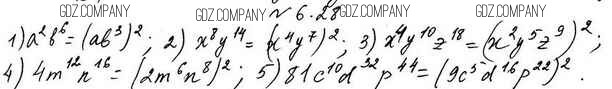 GDZ.COMPANY GDZ.COMPANY N 6.28 GDZ.COMPANY GDZ.COMPANY
1) a²b⁶=(ab³)²; 2) x⁸y¹⁴=(x⁴y⁷)²; 3) x⁴y¹⁰z¹⁸=(x²y⁵z⁹)²;
4) 4m¹²n¹⁶=(2m⁶n⁸)²; 5) 81c¹⁰d³²p⁴⁴=(9c⁵d¹⁶p²²)².